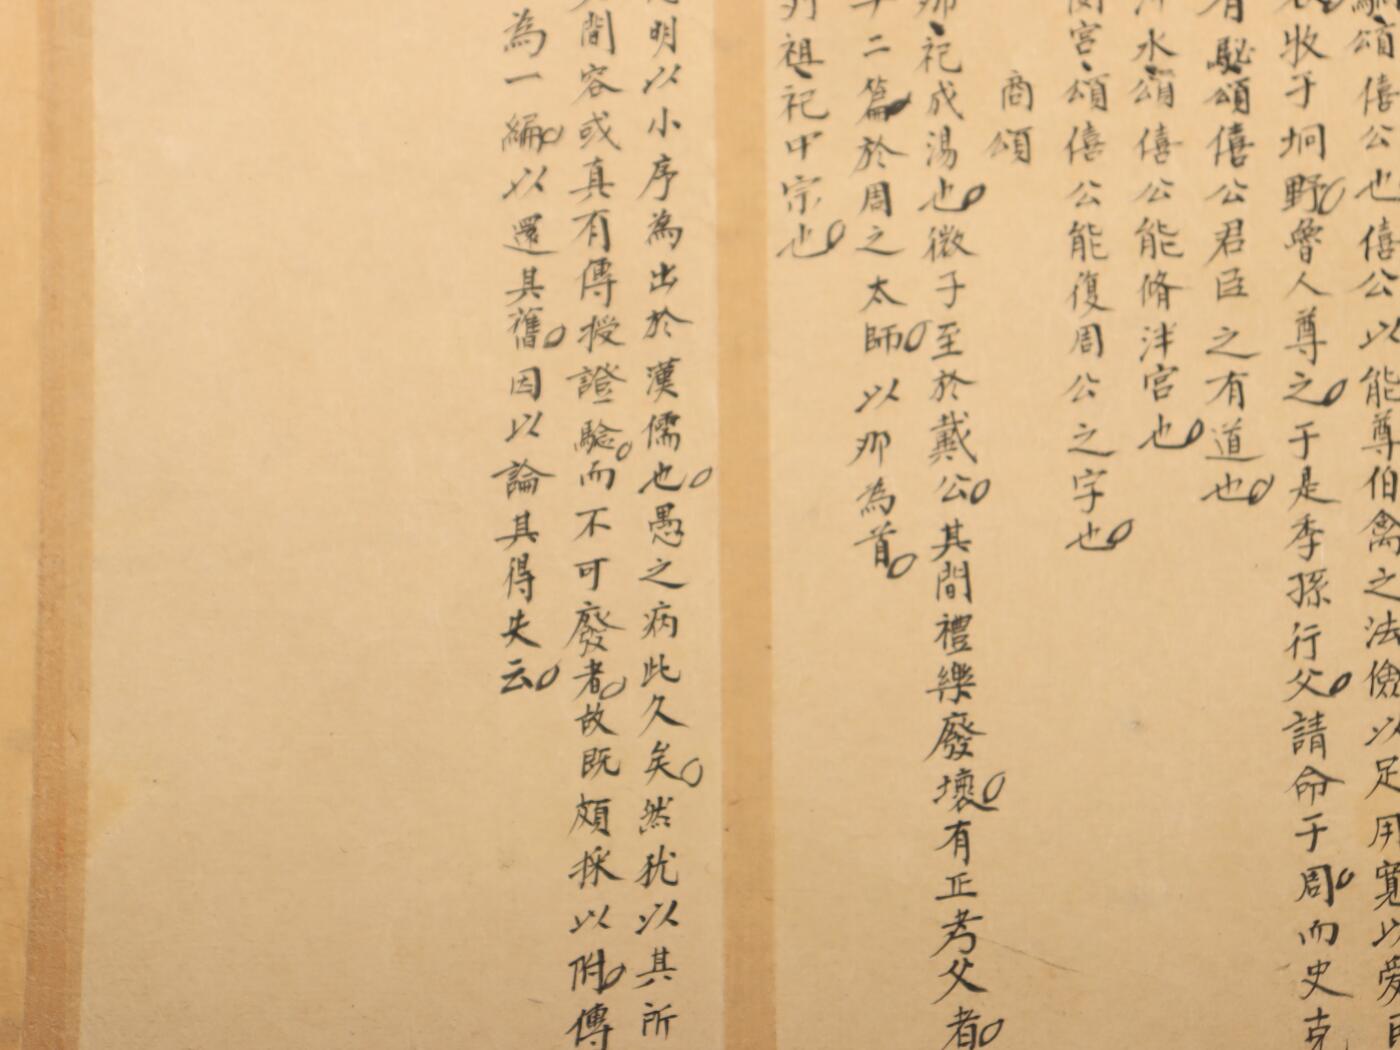 頌僖公也僖公以能尊伯禽之法儉以足用寬以愛
牧于坰野魯人尊之于是季孫行父請命于周而史克
有駜頌僖公君臣之有道也
泮水頌僖公能脩泮宮也
閟宮頌僖公能復周公之字也
商頌
那祀成湯也微子至於戴公其間禮樂廢壞有正考父者
十二篇於周之太師以那為首
烈祖祀中宗也
明以小序為出於漢儒也愚之病此久矣然犹以其所
間容或真有傳授證驗而不可廢者故既頗採以附傳
為一編以還其舊因以論其得失云